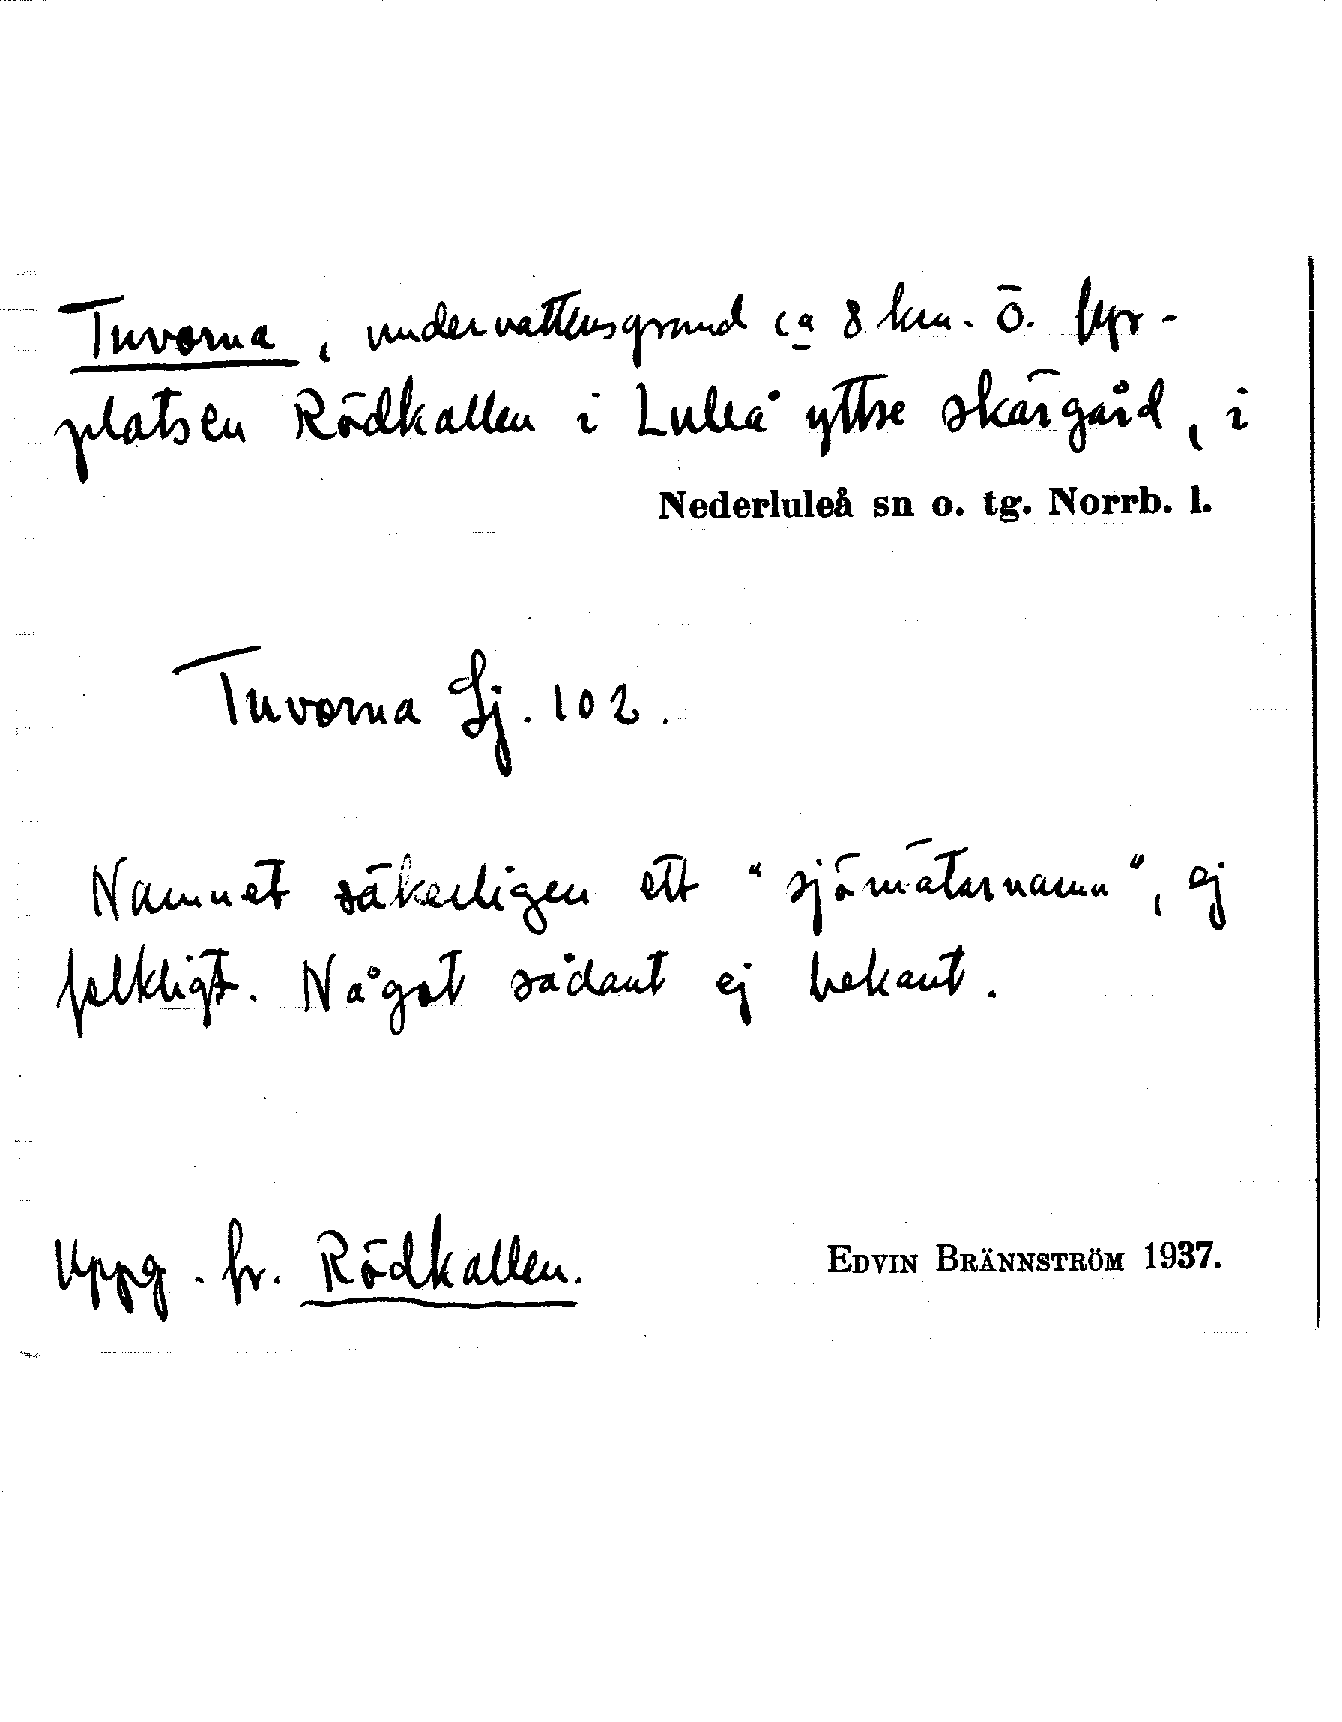 Tuvorna, undervattensgrund ca 8 km. Ö. fyr-
platsen Rödkallen i Luleå yttre skärgård, i
Nederluleå sn o. tg. Norrb. l.
Tuvorna Sj. 102.
Namnet säkerligen ett "sjömätarnamn", ej
folkligt. Något sådant ej bekant.
Uppg. fr. Rödkallen.
EDVIN BRÄNNSTRÖM 1937.